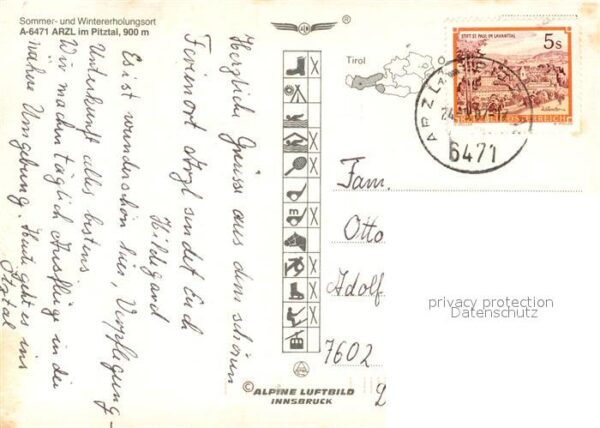 Sommer- und Wintererholungsort
A-6471 ARZL im Pitztal, 900 m
Herzliche Grüsse aus dem schönen
Ferienort Arzl sendet Euch
Hildegard
Es ist wunderschön hier, Verpflegung –
Unterkunft alles bestens
Wir machen täglich Ausflüge in die
nähere Umgebung. Heute geht es ins
Ötztal
Tirol
STIFT ST. PAUL IM LAVANTTAL
5s
REPUBLIK ÖSTERREICH
ARZL
6471
Fam.
Otto
Adolf
7602
privacy protection
Datenschutz
© ALPINE LUFTBILD
INNSBRUCK